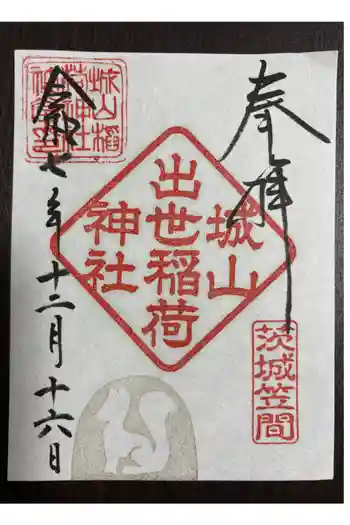 奉拝
茨城笠間
城山
出世稲荷
神社
城山稲
荷神社
令和七年十二月十六日